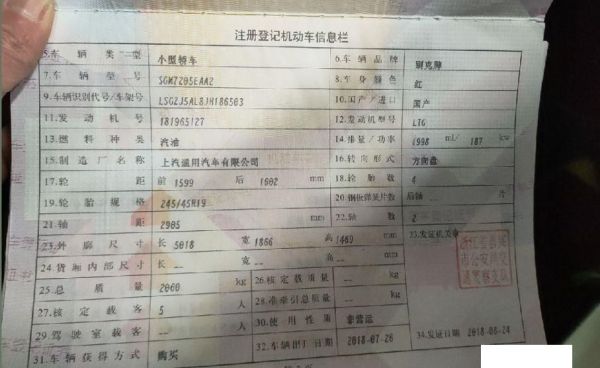 注册登记机动车信息栏
5.车辆类型 小型轿车 6.车辆品牌 别克牌
7.车辆型号 SGM7205EAA2 8.车身颜色 红
9.车辆识别代号/车架号 LSGZJ5AL8JH186503 10.国产/进口 国产
11.发动机号 181965127 12.发动机型号 LTG
13.燃料种类 汽油 14.排量/功率 1998 ml/ 187 kw
15.制造厂名称 上汽通用汽车有限公司 16.转向形式 方向盘
17.轮距 前 1599 后 1602 mm 18.轮胎数 4
19.轮胎规格 245/45R19 20.钢板弹簧片数 后轴 -- 片
21.轴距 2905 mm 22.轴数 2
23.外廓尺寸 长 5018 宽 1866 高 1469 mm 33.发证机关章
24.货厢内部尺寸 长 -- 宽 -- 高 -- mm
25.总质量 2060 kg 26.核定载质量 -- kg
27.核定载客 5 人 28.准牵引总质量 -- kg
29.驾驶室载客 -- 人 30.使用性质 非营运
31.车辆获得方式 购买 32.车辆出厂日期 2018-07-26 34.发证日期 2018-08-24